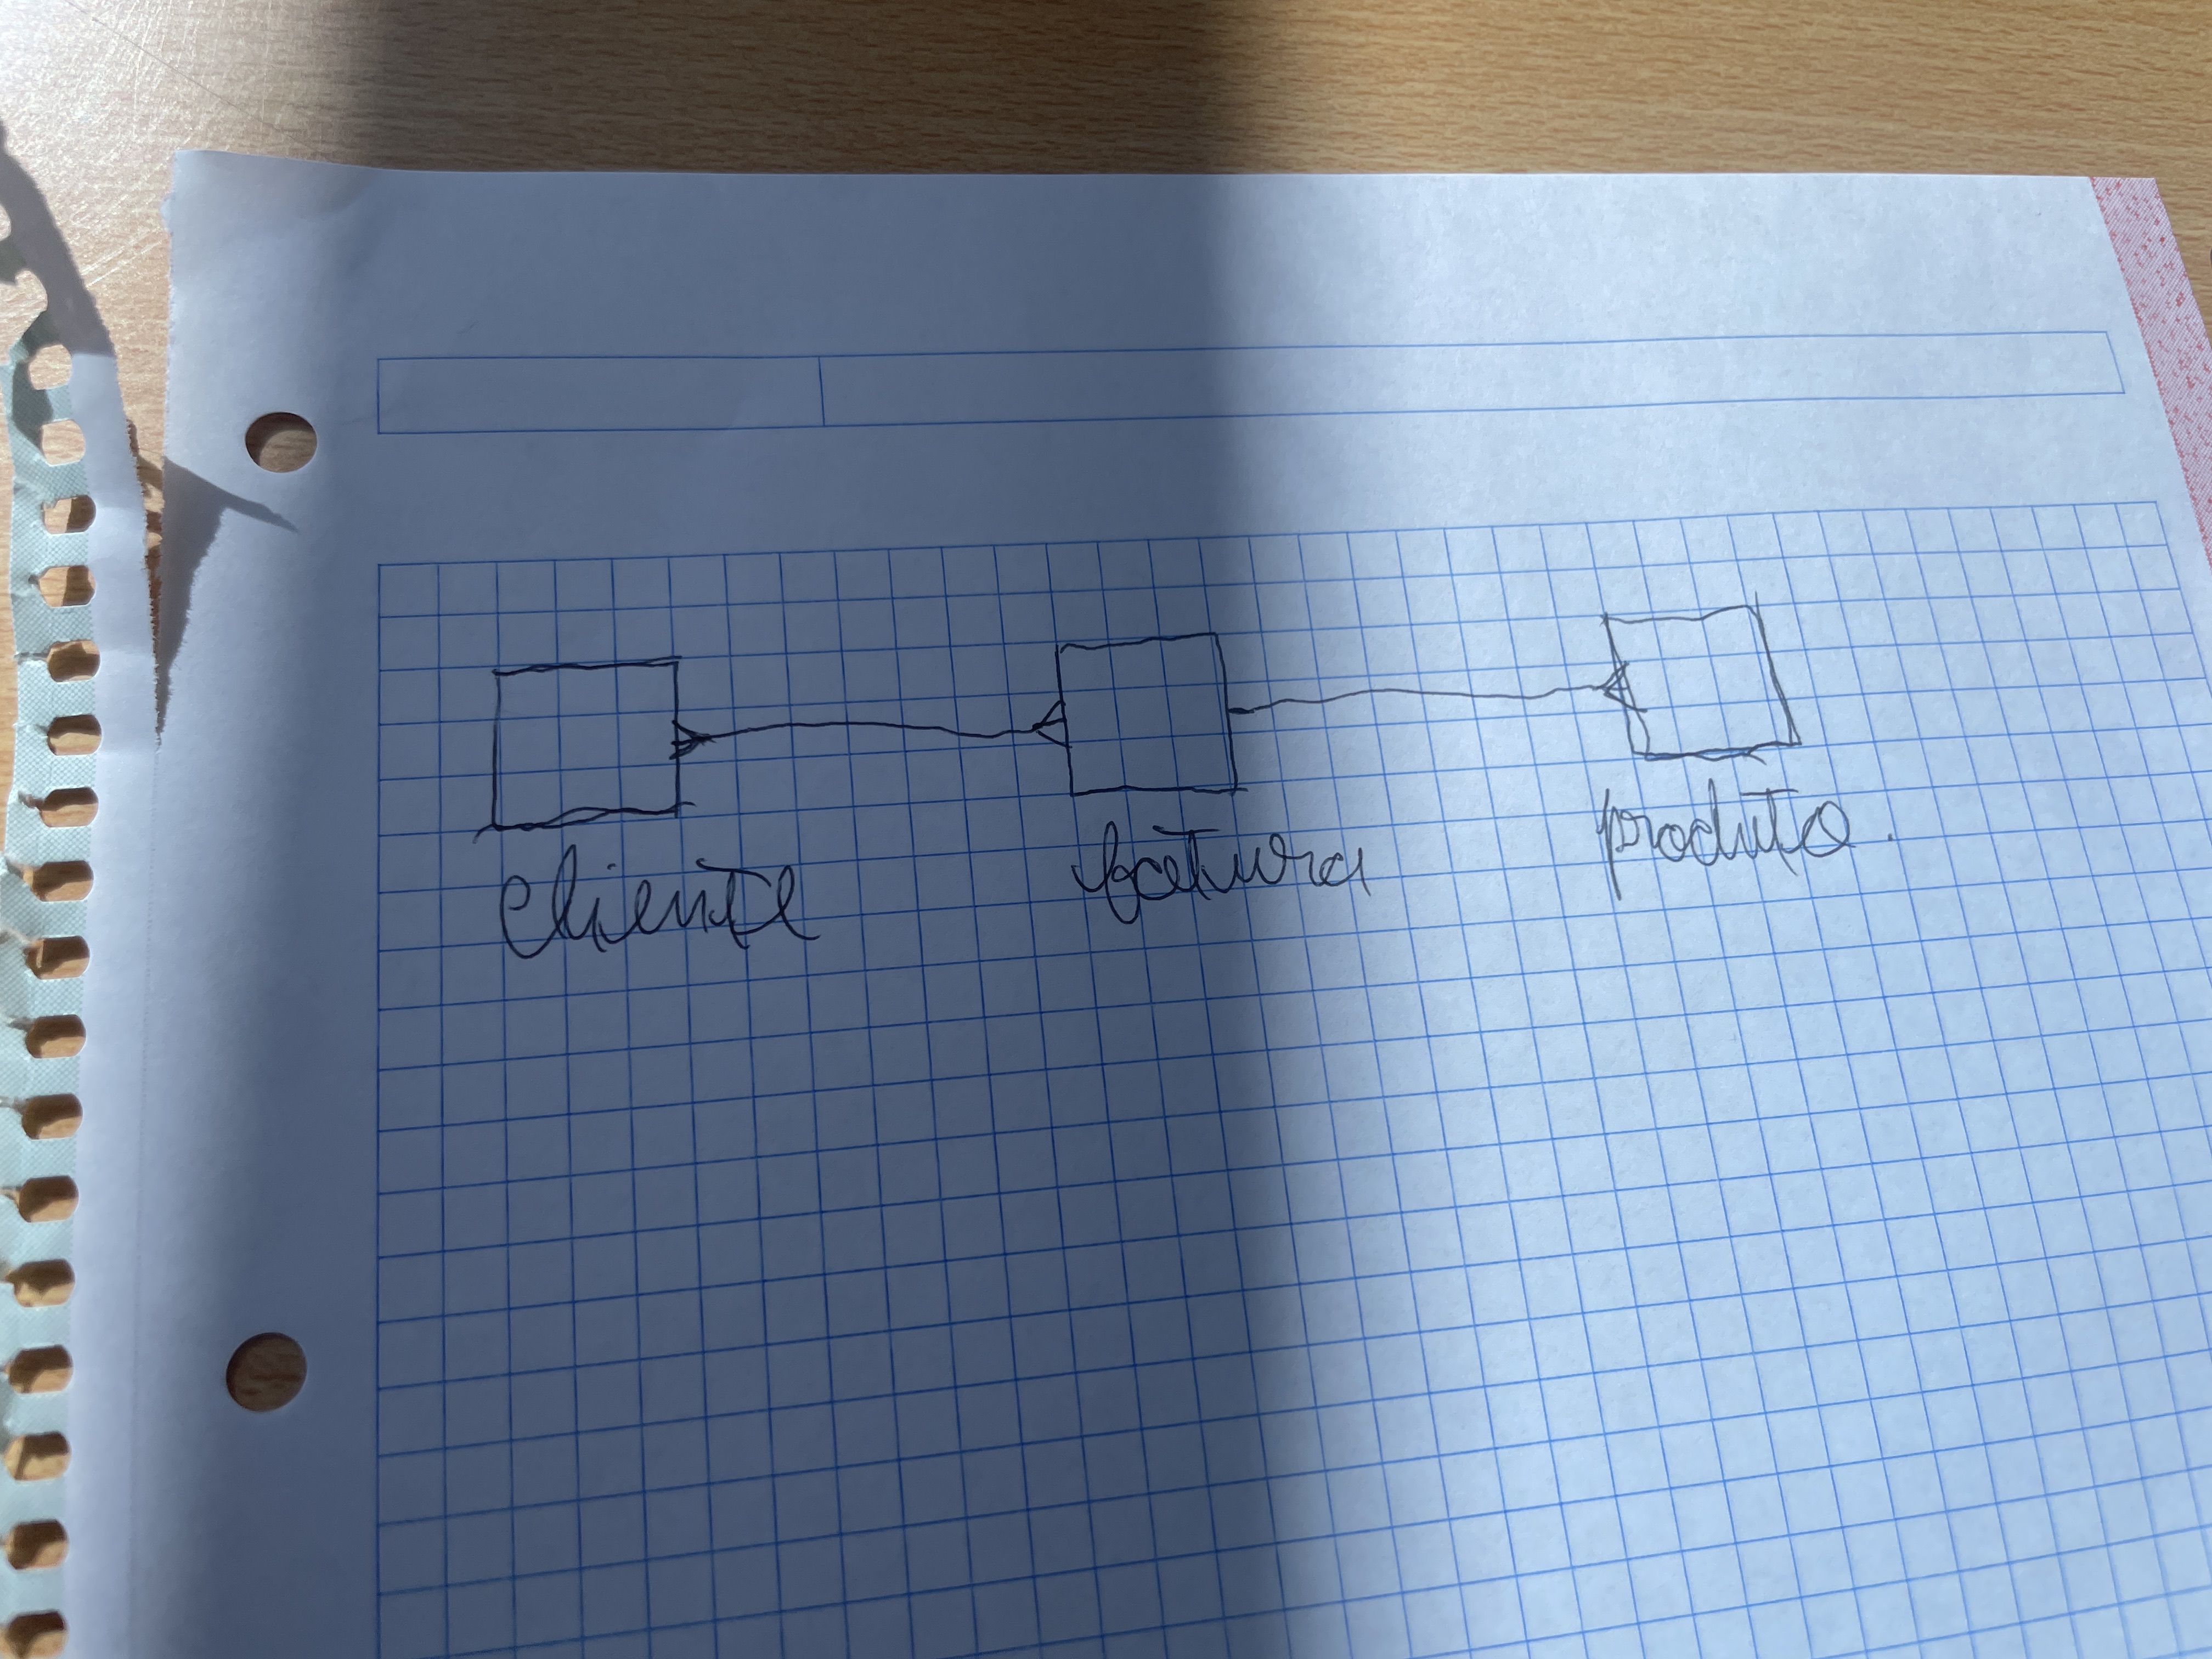 Cliente
factura
producto